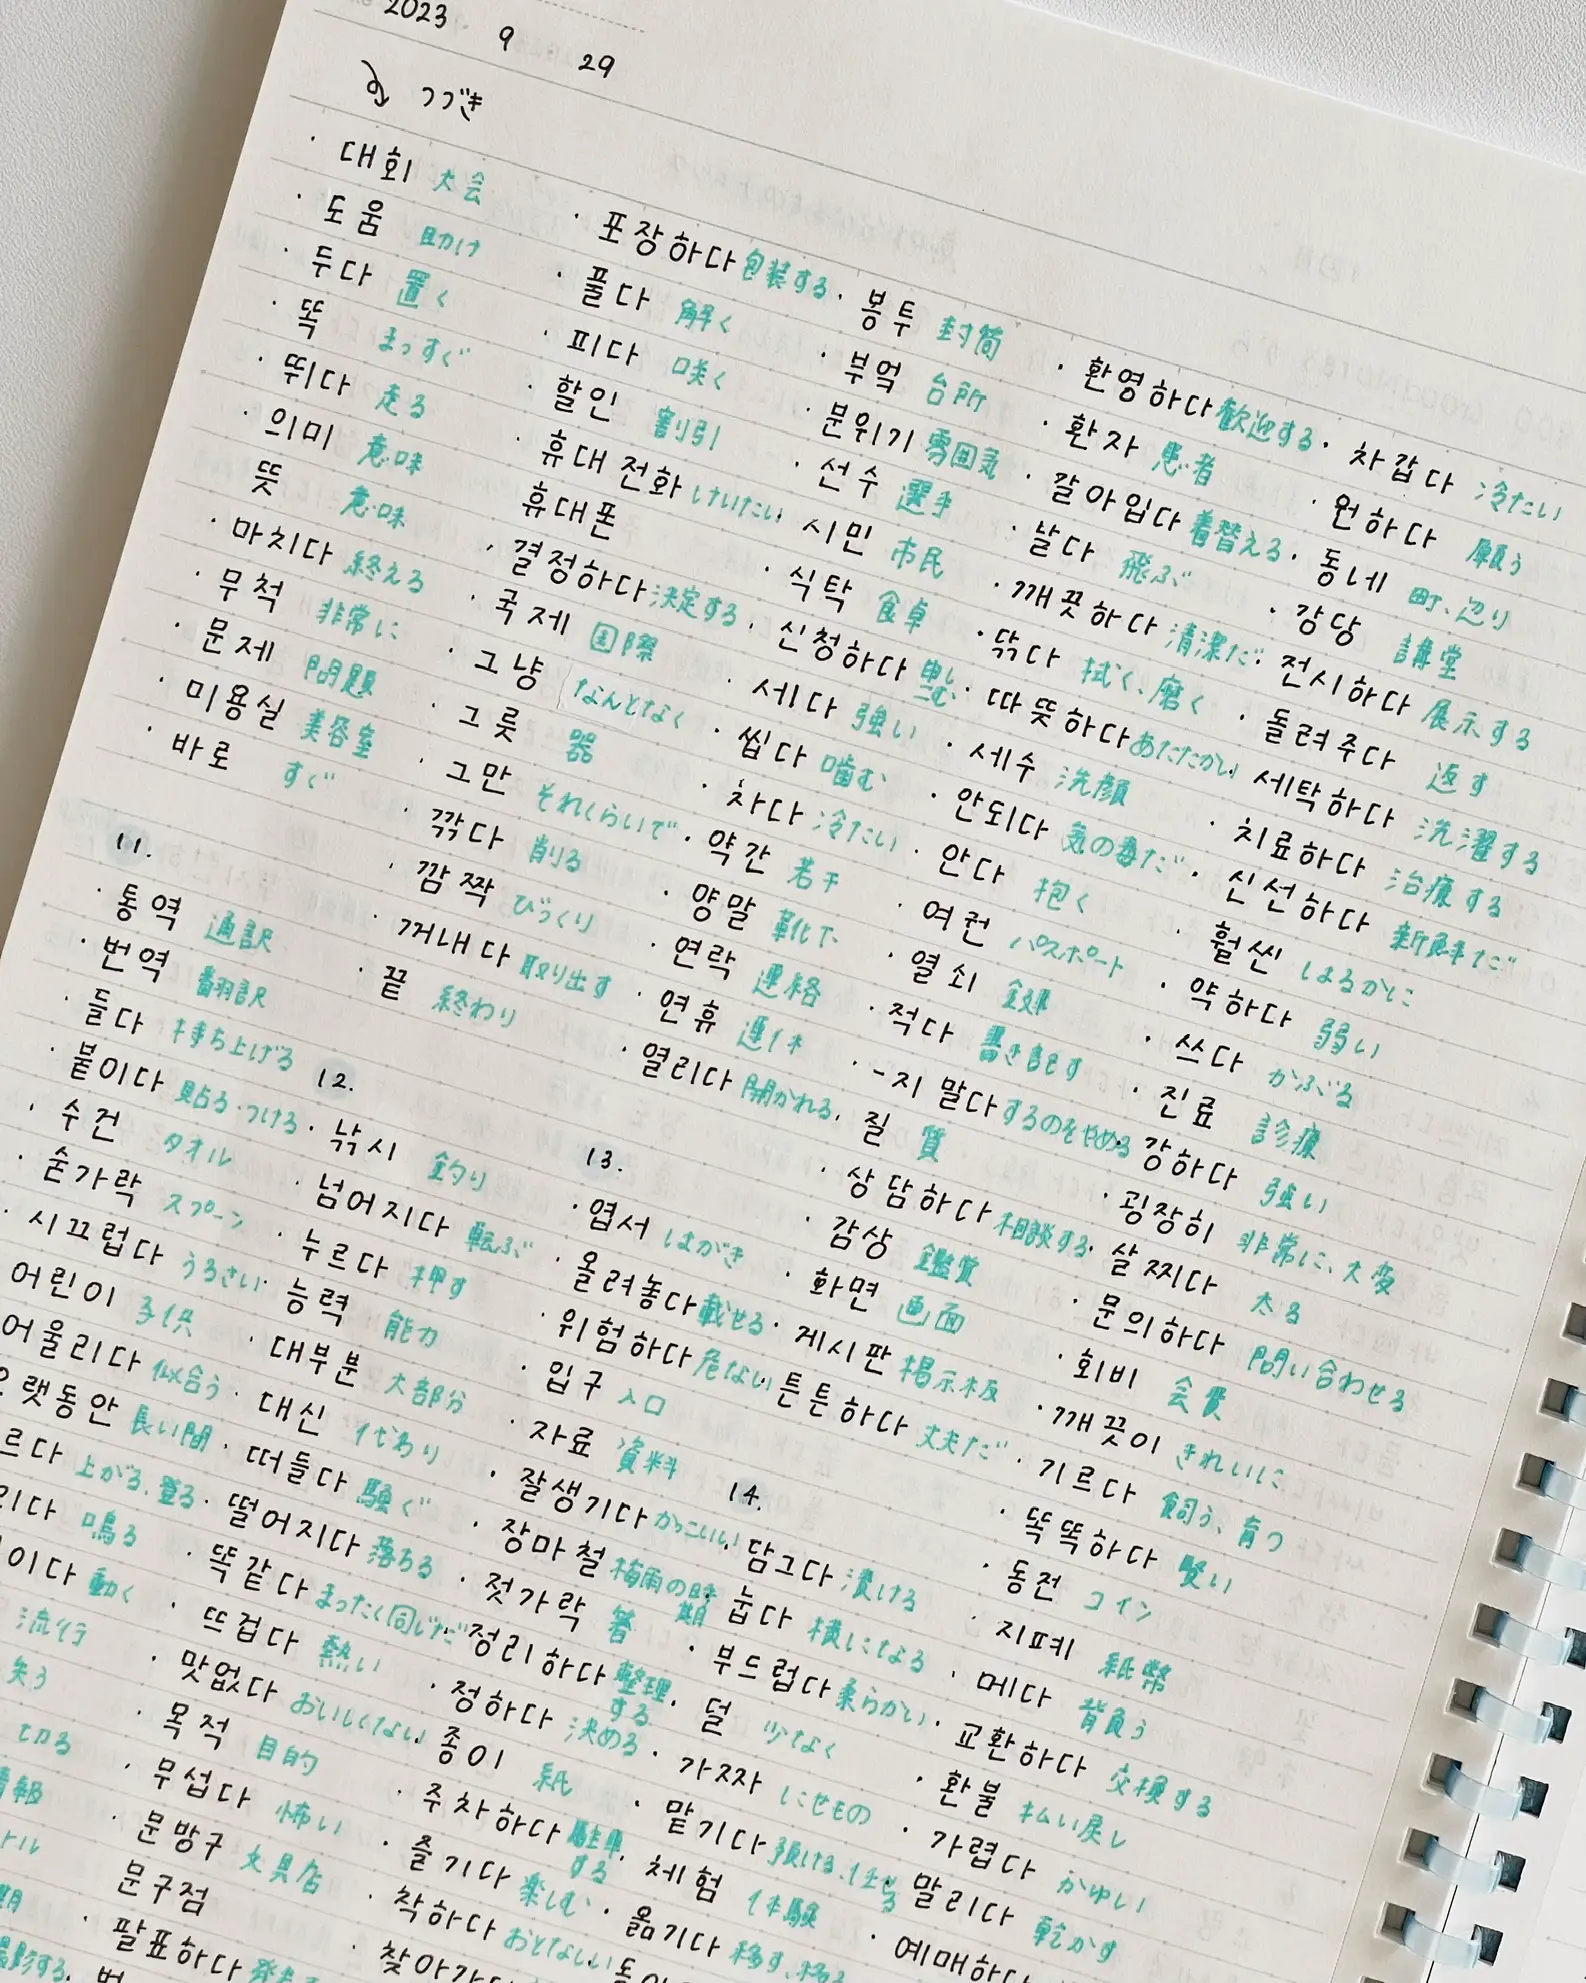 2023 9 29
つづき
・대회 大会
・도움 助け
・두다 置く
・똑 まっすぐ
・뛰다 走る
・의미 意味
뜻 意味
・마치다 終える
・무척 非常に
・문제 問題
・미용실 美容室
・바로 すぐ
11.
・통역 通訳
・번역 翻訳
・들다 持ち上げる
・붙이다 貼る・つける
・수건 タオル
・숟가락 スプーン
・시끄럽다 うるさい
어린이 子供
어울리다 似合う
오랫동안 長い間
르다 上がる、登る
리다 鳴る
이다 動く
流行
失う
切る
情報
・포장하다 包装する
・풀다 解く
・피다 咲く
・할인 割引
・휴대 전화 けいたい
휴대폰
・결정하다 決定する
・국제 国際
・그냥 なんとなく
・그릇 器
・그만 それくらいで
・깎다 削る
・깜짝 びっくり
・꺼내다 取り出す
・끝 終わり
12.
・낚시 釣り
・넘어지다 転ぶ
・누르다 押す
・능력 能力
・대부분 大部分
・대신 代わり
・떠들다 騒ぐ
・떨어지다 落ちる
・똑같다 まったく同じだ
・뜨겁다 熱い
・맛없다 おいしくない
・목적 目的
・무섭다 怖い
・문방구 文具店
문구점
・팔표하다
・봉투 封筒
・부엌 台所
・분위기 雰囲気
・선수 選手
・시민 市民
・식탁 食卓
・신청하다
・세다 強い
・씹다 噛む
・차다 冷たい
・약간 若干
・양말 靴下
・연락 連絡
・연휴 連休
・열리다 開かれる
13.
・엽서 はがき
・올려놓다 載せる
・위험하다 危ない
・입구 入口
・자료 資料
・잘생기다 かっこいい
・장마철 梅雨の時期
・젓가락 箸
・정리하다 整理する
・정하다 決める
종이 紙
・주차하다 駐車する
・즐기다 楽しむ
・착하다 おとなしい
찾아가
・환영하다 歓迎する
・환자 患者
・갈아입다 着替える
・날다 飛ぶ
・깨끗하다 清潔だ
・닦다 拭く、磨く
・따뜻하다 あたたかい
・세수 洗顔
・안되다 気の毒だ
・안다 抱く
・여권 パスポート
・열쇠 鍵
・적다 書き記す
・-지 말다 するのをやめる
・질 質
・상담하다 相談する
・감상 鑑賞
・화면 画面
・게시판 掲示板
튼튼하다 丈夫だ
14.
・담그다 漬ける
・눕다 横になる
・부드럽다 柔らかい
・덜 少なく
・가짜 にせもの
・맡기다 預ける、任せる
・체험 体験
・옮기다 移す、移る
・차갑다 冷たい
・원하다 願う
・동네 町、辺り
・강당 講堂
・전시하다 展示する
・돌려주다 返す
세탁하다 洗濯する
・치료하다 治療する
・신선하다 新鮮だ
・훨씬 はるかに
・약하다 弱い
・쓰다 かぶる
・진료 診療
강하다 強い
・굉장히 非常に、大変
・살찌다 太る
・문의하다 問い合わせる
・회비 会費
・깨끗이 きれいに
・기르다 飼う、育つ
・똑똑하다 賢い
・동전 コイン
・지폐 紙幣
・메다 背負う
・교환하다 交換する
・환불 払い戻し
・가렵다 かゆい
말리다 乾かす
・예매하다